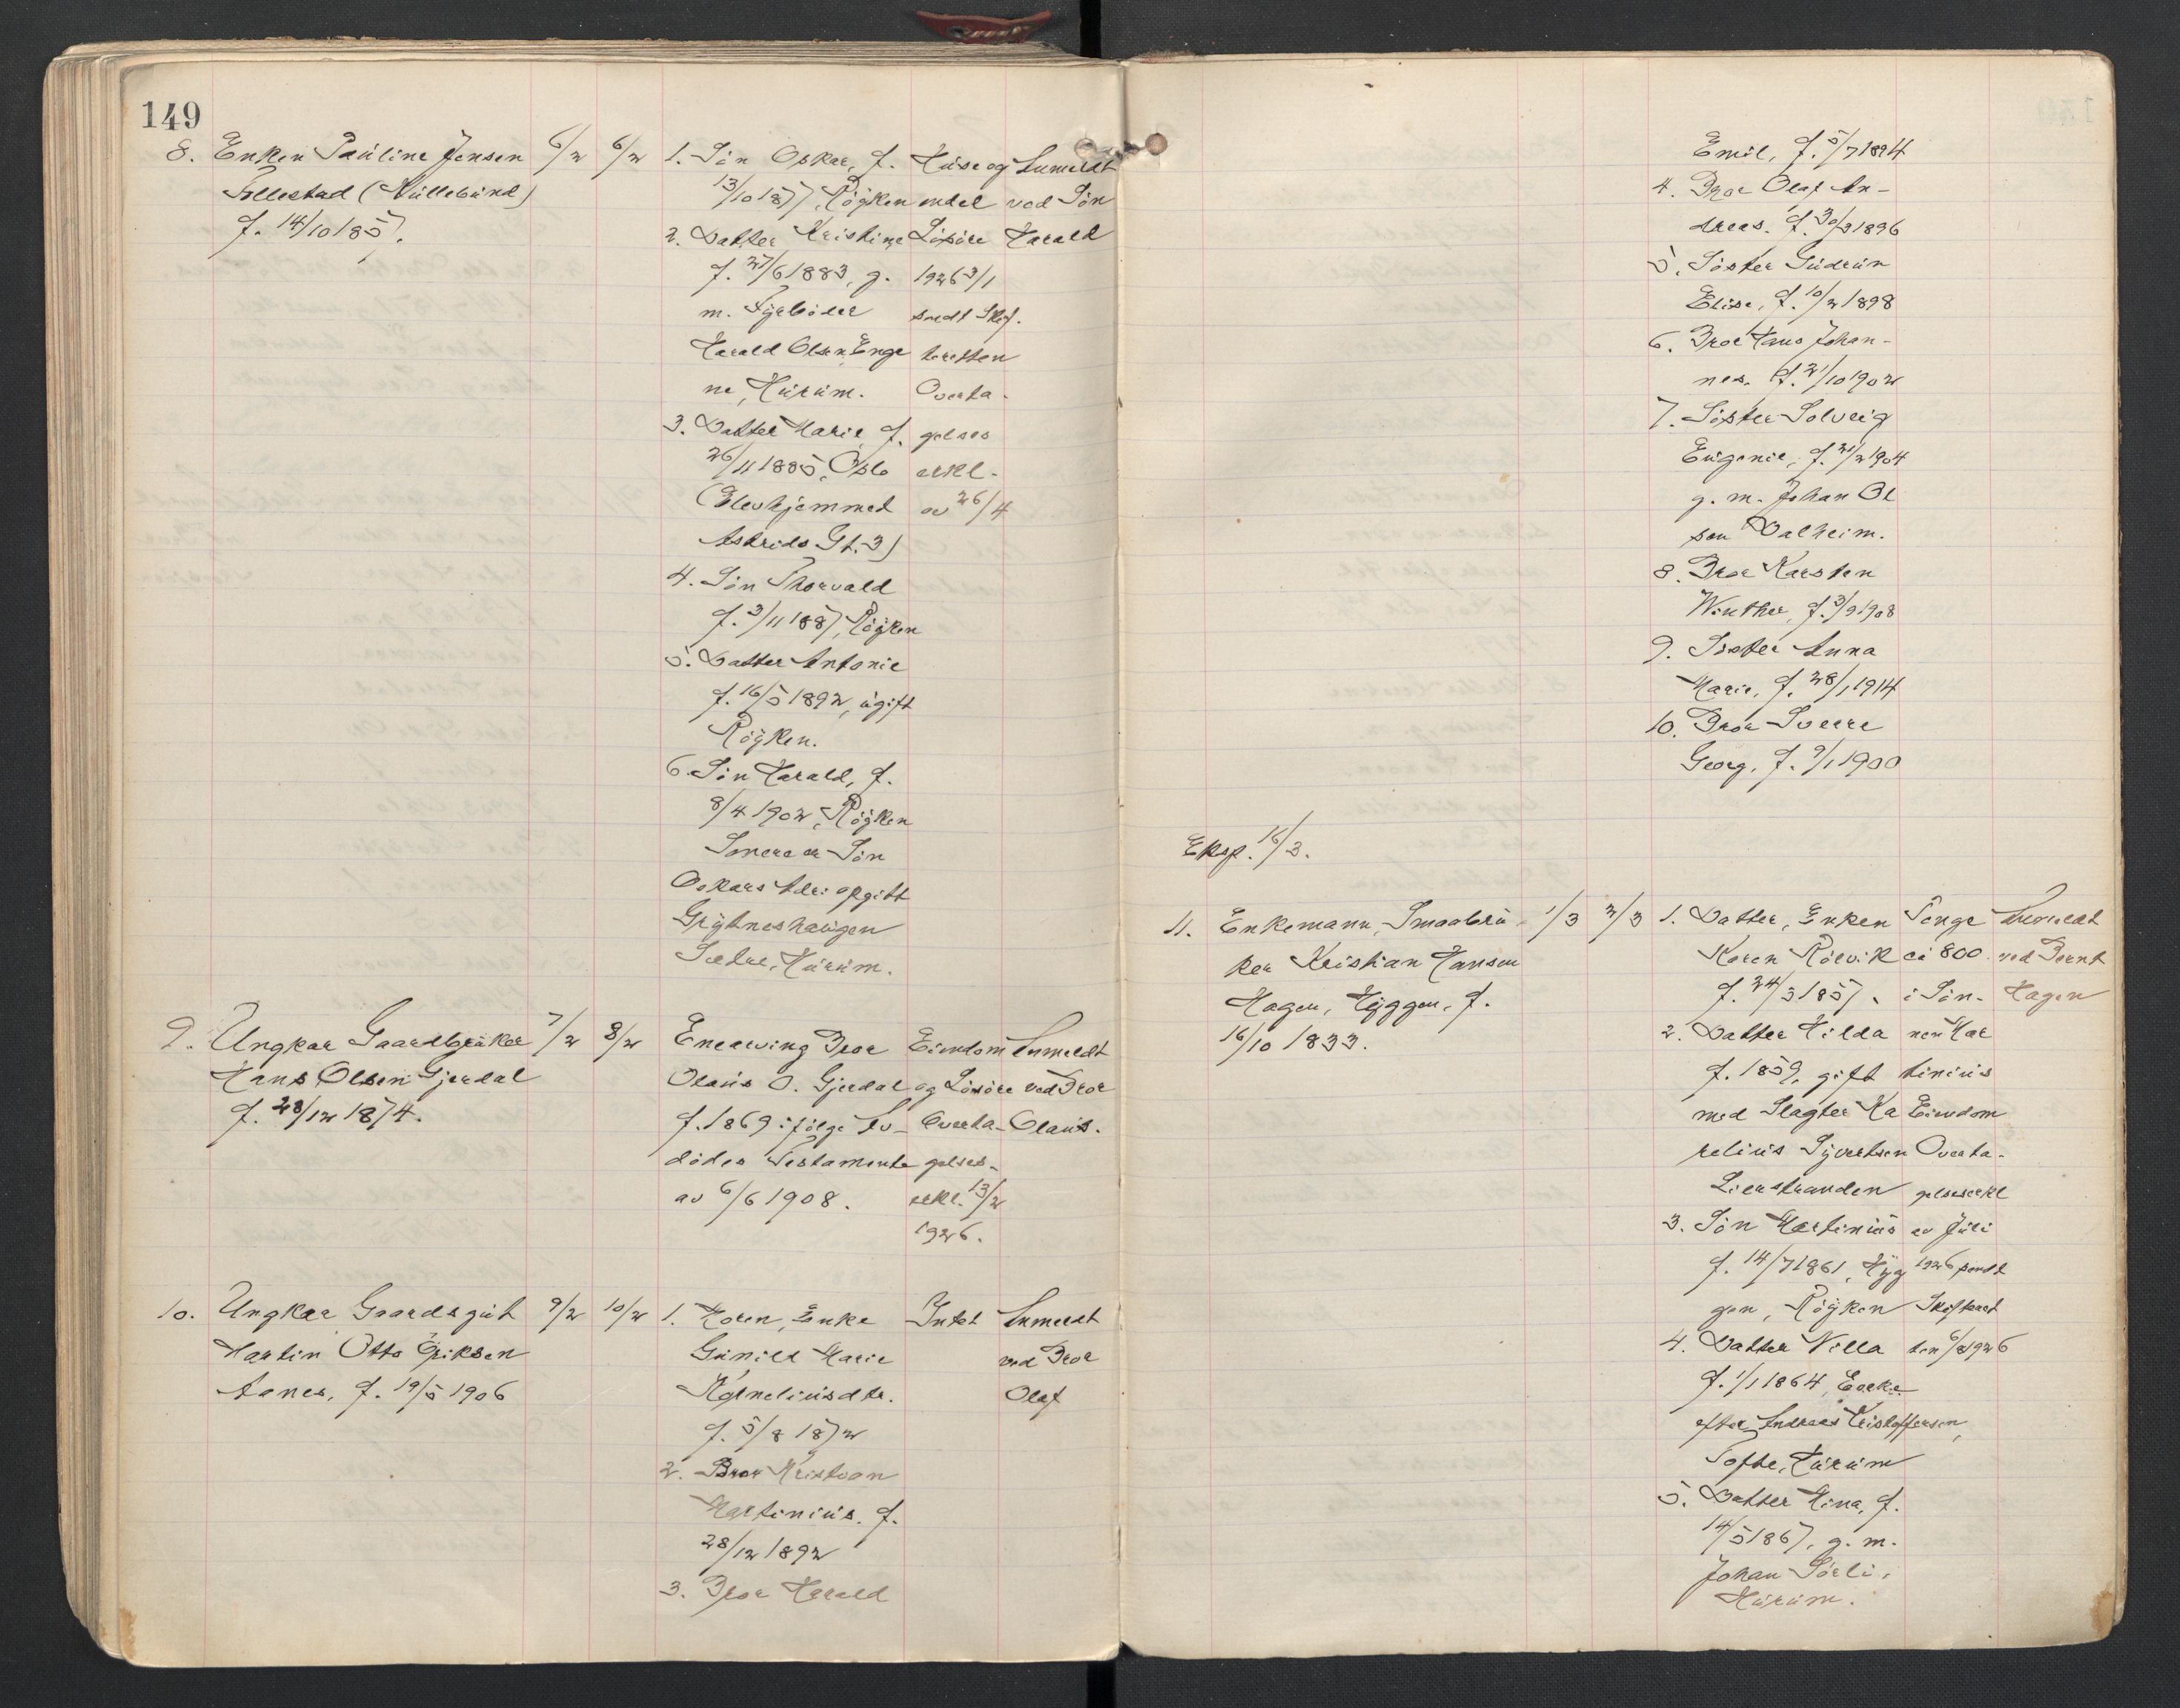 149
8. Enken Pauline Jensen 6/2 6/2
Follestad (Kullebund)
f. 14/10 1857.
1. Sön Oskar, f.
13/10 1877, Röyken
2. Datter Kristine
f. 27/6 1883, g.
m. Fyrböter
Harald Olsen Enge
ne, Hurum.
3. Datter Marie, f.
26/11 1885, Oslo
(Elevhjemmet
Astrids Gt. 3)
4. Sön Thorvald
f. 3/11 1887, Röyken
5. Datter Antonie
f. 16/5 1892, ugift
Röyken.
6. Sön Harald, f.
8/4 1902, Röyken
Senere er Sön
Oskars Adr: opgitt
Grytneshaugen
Sætre, Hurum.
Huse og
endel
Lösöre
1926 3/1
sendt Skif-
teretten
Overta-
gelses
erkl.
av 26/4
Anmeldt
ved Sön
Harald
9. Ungkar Gaardbruker 7/2 8/2
Hans Olsen Gjerdal
f. 28/12 1874.
Enearving Bror
Olaus O. Gjerdal
f. 1869 ifölge Av-
dödes Testamente
av 6/6 1908.
Eiendom
og Lösöre
Overta-
gelses-
erkl. 13/2
1926.
Anmeldt
ved Bror
Olaus.
10. Ungkar Gaardsgut 9/2 10/2
Martin Otto Eriksen
Aanes, f. 19/5 1906
1. Moren, Enke
Gunild Marie
Korneliusdtr.
f. 5/8 1872
2. Bror Kristian
Martinius. f.
28/12 1892
3. Bror Harald
Intet
Anmeldt
ved Bror
Olaf
Emil, f. 5/7 1894
4. Bror Olaf An-
dreas. f. 30/3 1896
5. Söster Gudrun
Elise, f. 10/2 1898
6. Bror Hans Johan-
nes. f. 21/10 1902
7. Söster Solveig
Eugenie, f. 21/2 1904
g. m. Johan Ol
sen Dalheim.
8. Bror Karsten
Winther, f. 3/9 1908
9. Söster Anna
Marie, f. 28/1 1914
10. Bror Sverre
Georg, f. 9/1 1900
Eksp. 16/3.
11. Enkemann, Smaabru- 1/3 2/3
ker Kristian Hansen
Hagen, Hyggen, f.
16/10 1833.
1. Datter, Enken
Karen Rörvik
f. 24/3 1857.
2. Datter Hilda
f. 1859, gift
med Slagter Ka
relius Syvertsen
Lierstranden
3. Sön Martinius
f. 14/7 1861, Hyg
gen, Röyken
4. Datter Villa
f. 1/1 1864, Enke
efter Andreas Kristoffersen,
Tofte, Hurum
5. Datter Mina, f.
14/5 1867, g. m.
Johan Sörli,
Hurum.
Penge
ca 800
i Sön-
nen Mar
tinius
Eiendom
Overta-
gelseserkl
av Juli
1926 sendt
Skifteret
ten 6/8 1926
Anmeldt
ved Bernt
Hagen